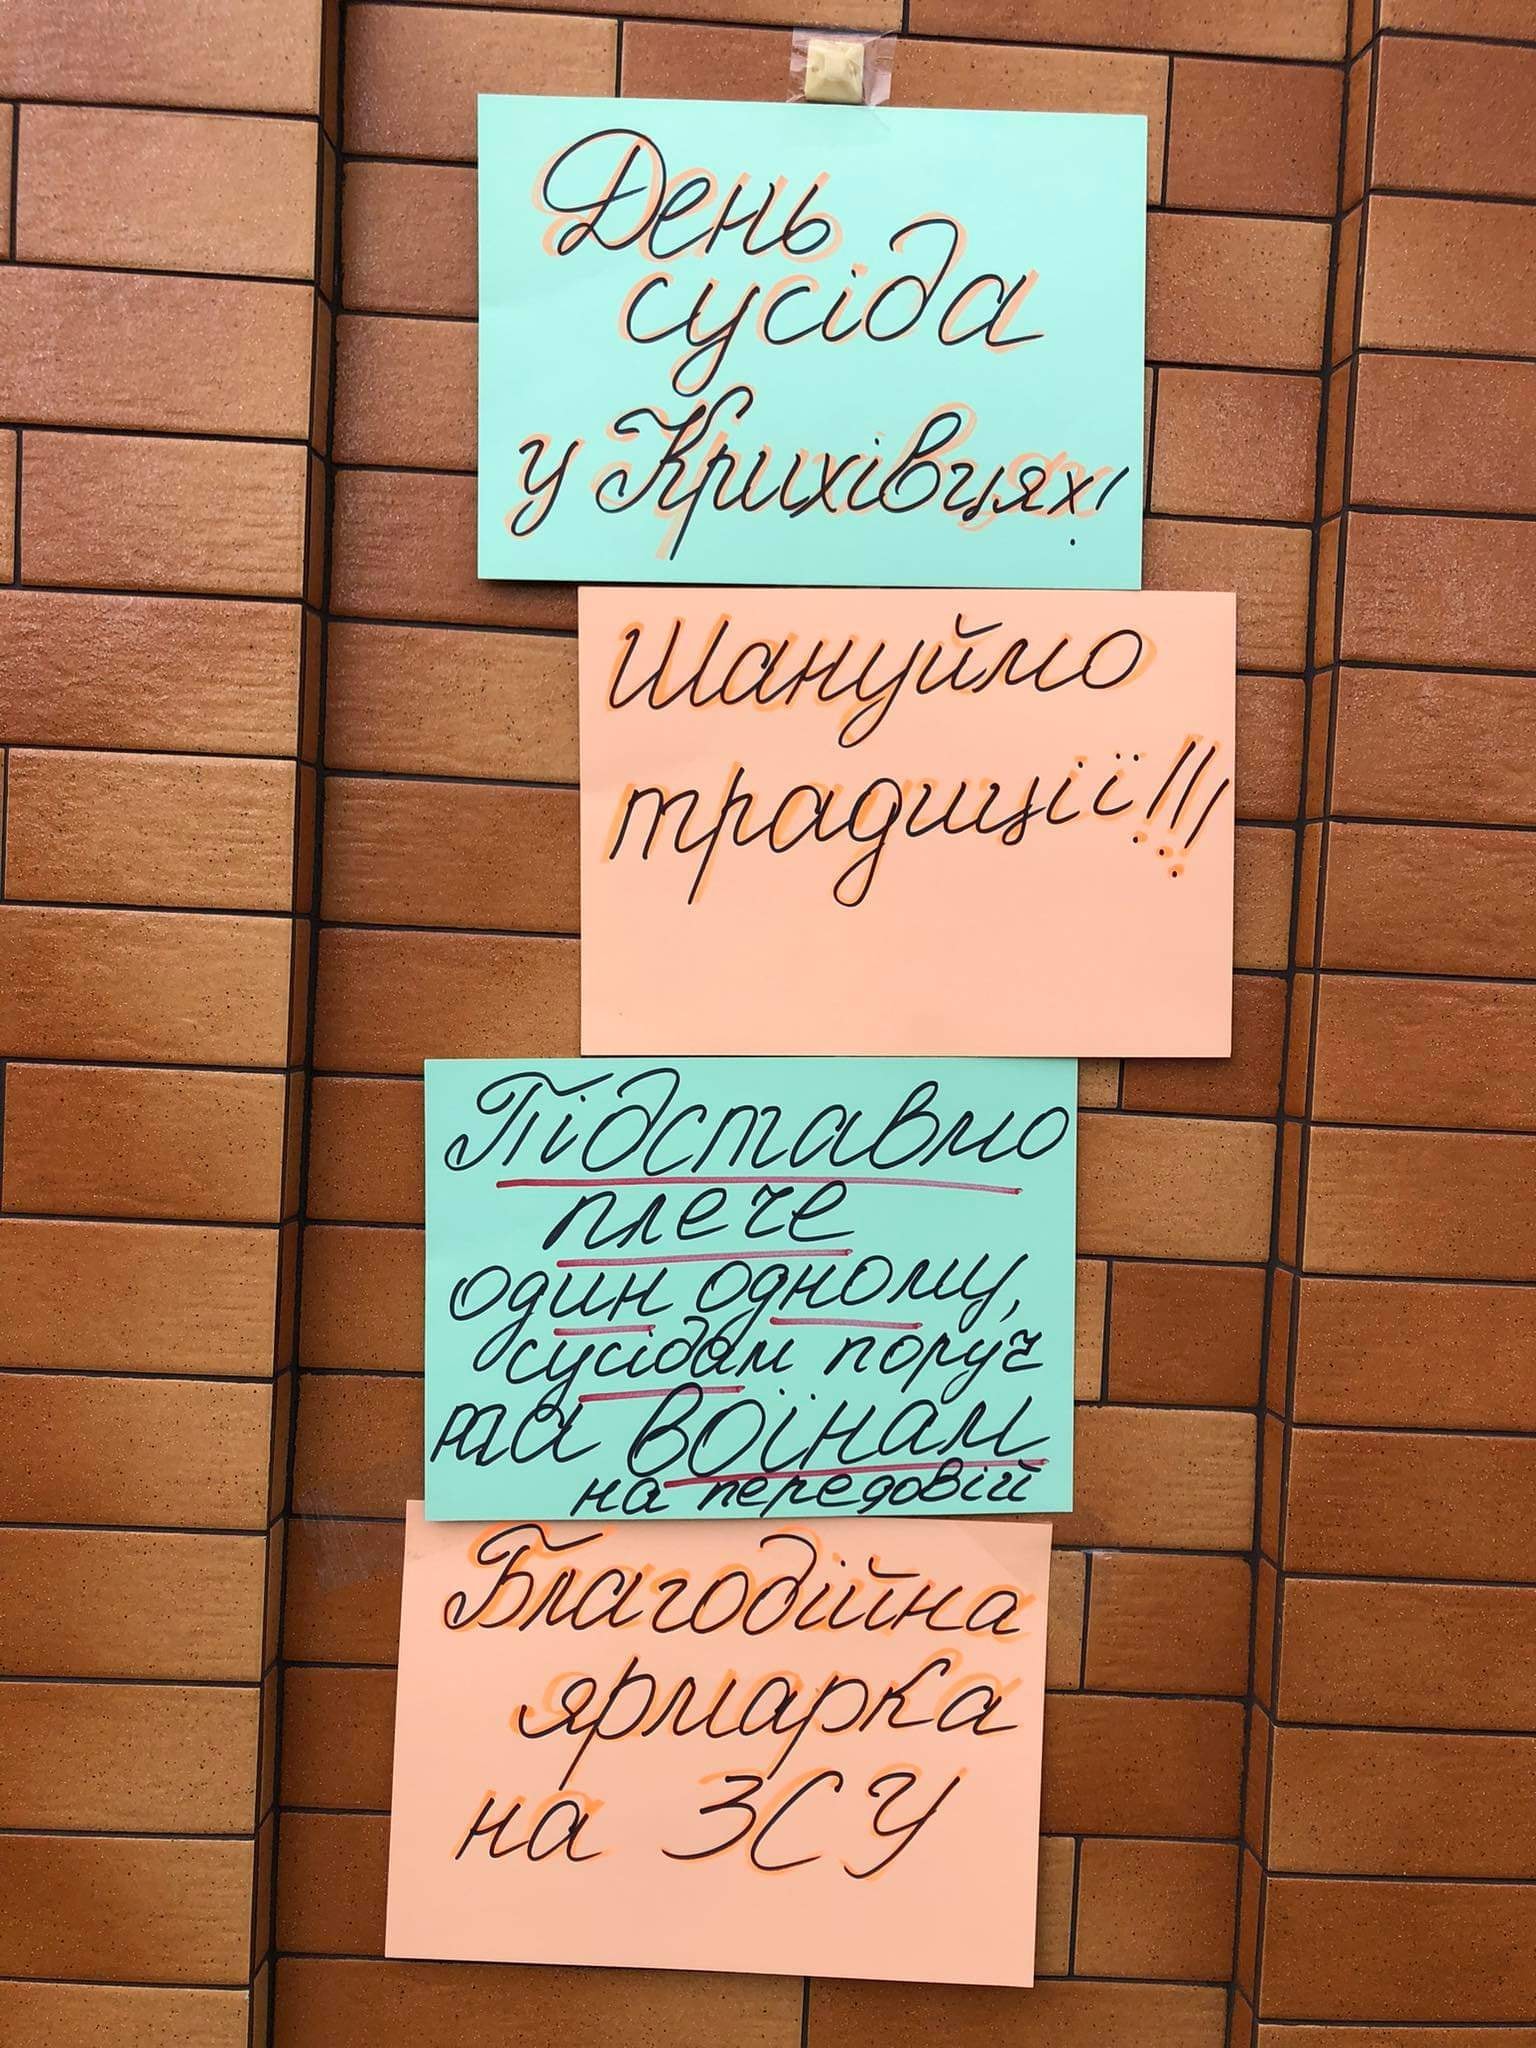 День
сусіда
у Крихівцях!
Шануймо
традиції!!!
Підставмо
плече
один одному,
сусідам поруч
та воїнам
на передовій
Благодійна
ярмарка
на ЗСУ